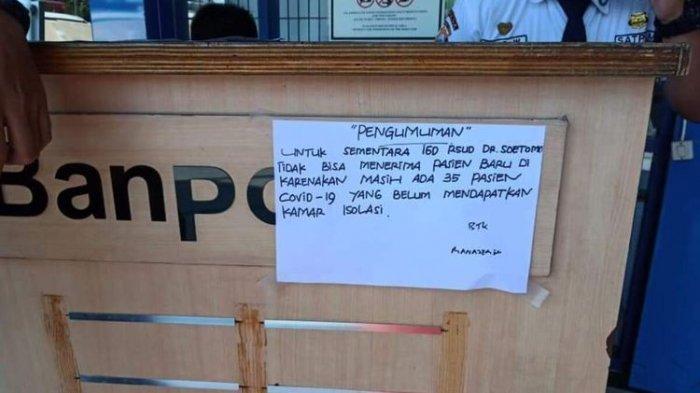 "PENGUMUMAN"
UNTUK SEMENTARA IGD RSUD DR. SOETOMO
TIDAK BISA MENERIMA PASIEN BARU DI
KARENAKAN MASIH ADA 35 PASIEN
COVID-19 YANG BELUM MENDAPATKAN
KAMAR ISOLASI.
BanPo